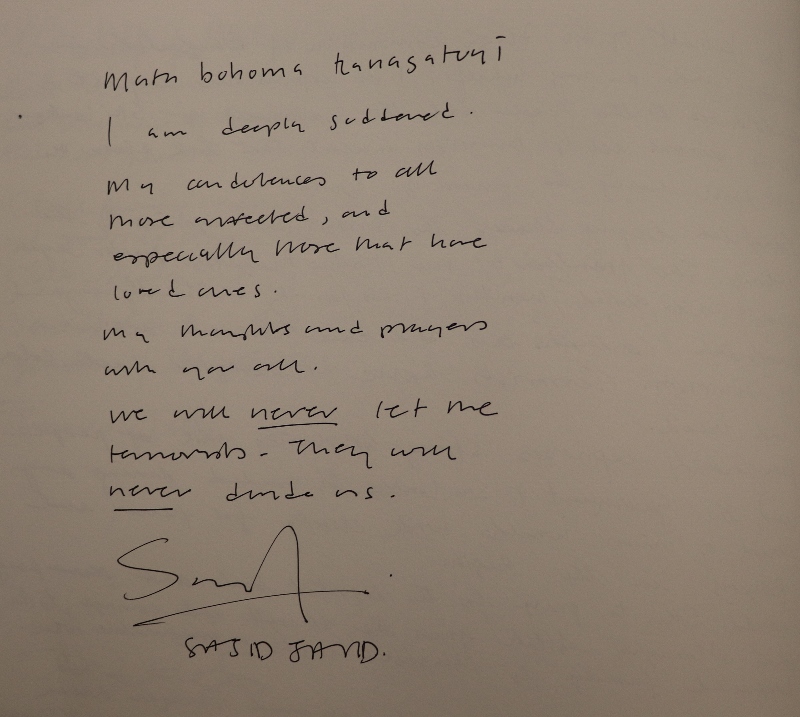 Mata bohoma kanagatuyi
I am deeply saddened.
My condolences to all
those affected, and
especially those that have
loved ones.
My thoughts and prayers
with you all.
We will never let the
terrorists - They will
never divide us.
SAJID JAVID.